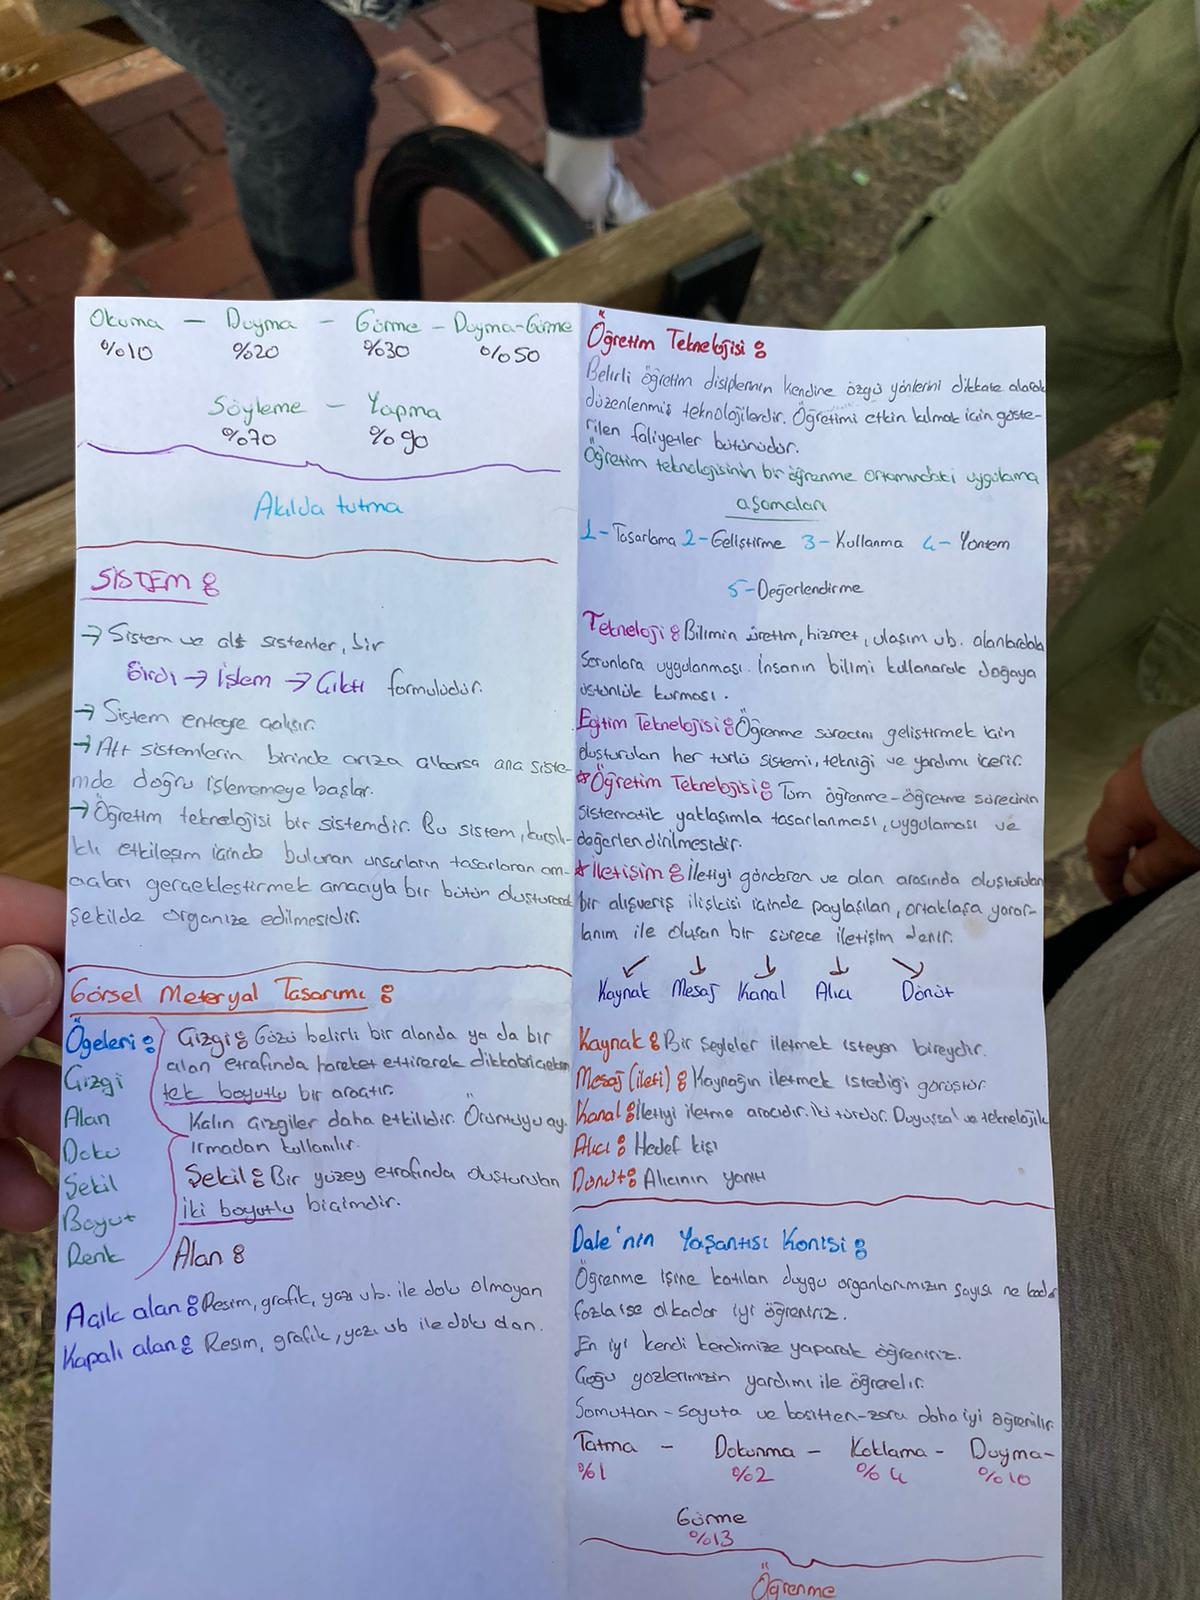 Okuma — Duyma — Görme — Duyma-Görme
%10 %20 %30 %50
Söyleme — Yapma
%70 %90
Akılda tutma
SİSTEM:
→ Sistem ve alt sistemler, bir
Girdi → İşlem → Çıktı formülüdür.
→ Sistem entegre çalışır.
→ Alt sistemlerin birinde arıza olursa ana siste-
mde doğru işlememeye başlar.
→ Öğretim teknolojisi bir sistemdir. Bu sistem, karşılı-
klı etkileşim içinde bulunan unsurların tasarlanan am-
açları gerçekleştirmek amacıyla bir bütün oluşturacak
şekilde organize edilmesidir.
Görsel Meteryal Tasarımı:
Ögeleri:
Çizgi
Alan
Doku
Şekil
Boyut
Renk
Çizgi: Gözü belirli bir alanda ya da bir
alan etrafında hareket ettirerek dikkati çeken
tek boyutlu bir araçtır.
Kalın çizgiler daha etkilidir. Örüntüyü ay-
ırmadan kullanılır.
Şekil: Bir yüzey etrafında oluşturulan
iki boyutlu biçimdir.
Alan:
Açık alan: Resim, grafik, yazı vb. ile dolu olmayan
Kapalı alan: Resim, grafik, yazı vb ile dolu olan.
Öğretim Teknolojisi:
Belirli öğretim disiplerinin kendine özgü yönlerini dikkate alarak
düzenlenmiş teknolojilerdir. Öğretimi etkin kılmak için göste-
rilen faliyetler bütünüdür.
Öğretim teknolojisinin bir öğrenme ortamındaki uygulama
aşamaları
1- Tasarlama 2- Geliştirme 3- Kullanma 4- Yöntem
5- Değerlendirme
Teknoloji: Bilimin üretim, hizmet, ulaşım vb. alanlardaki
sorunlara uygulanması. İnsanın bilimi kullanarak doğaya
üstünlük kurması.
Eğitim Teknolojisi: Öğrenme sürecini geliştirmek için
oluşturulan her türlü sistemi, tekniği ve yardımı içerir.
*Öğretim Teknolojisi: Tüm öğrenme-öğretme sürecinin
sistematik yaklaşımla tasarlanması, uygulaması ve
değerlendirilmesidir.
*İletişim: İletiyi gönderen ve alan arasında oluşturulan
bir alışveriş ilişkisi içinde paylaşılan, ortaklaşa yarar-
lanım ile oluşan bir sürece iletişim denir.
Kaynak Mesaj Kanal Alıcı Dönüt
Kaynak: Bir şeyleler iletmek isteyen bireydir.
Mesaj (ileti): Kaynağın iletmek istediği görüştür
Kanal: İletiyi iletme aracıdır. İki türdür. Duyuşsal ve teknolojik
Alıcı: Hedef kişi
Dönüt: Alıcının yanıtı
Dale'nin Yaşantısı Konisi:
Öğrenme işine katılan duygu organlarımızın sayısı ne kadar
fazla ise o kadar iyi öğreniriz.
En iyi kendi kendimize yaparak öğreniriz.
Çoğu gözlerimizin yardımı ile öğrenilir.
Somuttan-soyuta ve basitten-zora daha iyi öğrenilir.
Tatma — Dokunma — Koklama - Duyma-
%1 %2 %4 %10
Görme
%13
Öğrenme